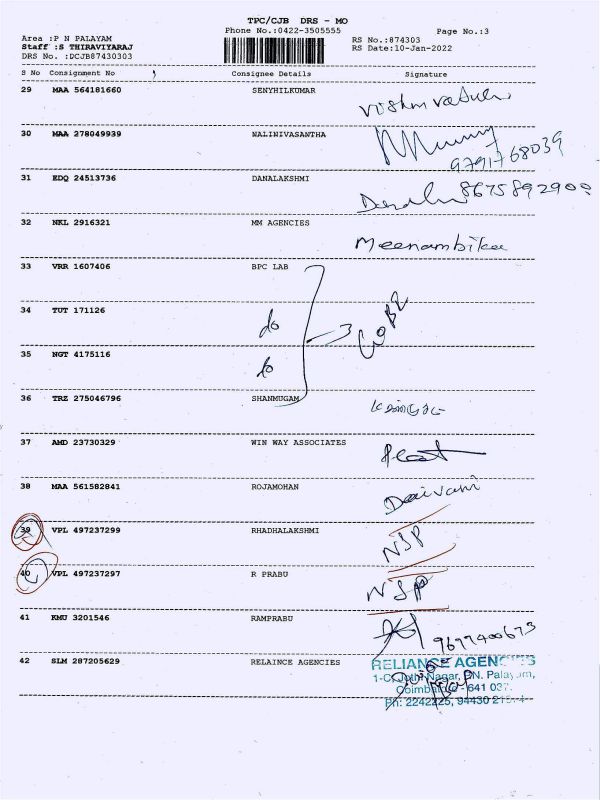 TPC/CJB DRS - MO
Phone No.:0422-3505555 Page No.:3
Area :P N PALAYAM RS No.:874303
Staff :S THIRAVIYARAJ RS Date:10-Jan-2022
DRS No. :DCJB87430303
S No Consignment No Consignee Details Signature
29 MAA 564181660 SENYHILKUMAR
30 MAA 278049939 NALINIVASANTHA
9791768039
31 EDQ 24513736 DANALAKSHMI 8675892900
32 NKL 2916321 MM AGENCIES Meenambikea
33 VRR 1607406 BPC LAB
34 TUT 171126 do
35 NGT 4175116 do
36 TRZ 275046796 SHANMUGAM
37 AMD 23730329 WIN WAY ASSOCIATES
38 MAA 561582841 ROJAMOHAN Daivani
39 VPL 497237299 RHADHALAKSHMI NSP
40 VPL 497237297 R PRABU NSP
41 KMU 3201546 RAMPRABU 9677400673
42 SLM 287205629 RELAINCE AGENCIES RELIANCE AGENCIES
1-C, Jothi Nagar, P.N. Palayam,
Coimbatore - 641 037.
Ph: 2242225, 94430